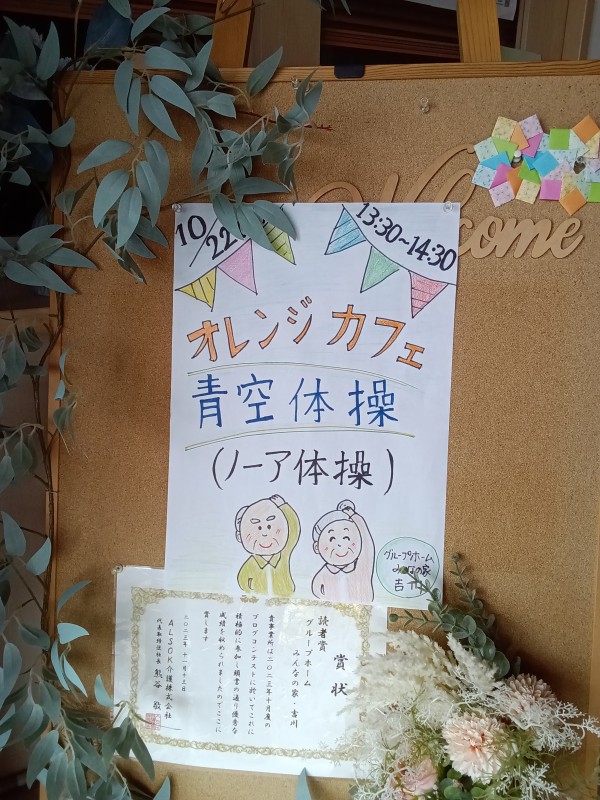 Welcome
10/22
13:30~14:30
オレンジカフェ
青空体操
(ノーア体操)
グループホーム
みんなの家
吉川
賞状
読者賞
グループホーム
みんなの家・吉川
貴事業所は二〇二三年十月度の
ブログコンテストに於いてこれに
積極的に参加し頭書の通り優秀な
成績を収められましたのでここに
賞します
二〇二三年十一月十三日
ALSOK介護株式会社
代表取締役社長 熊谷 敬